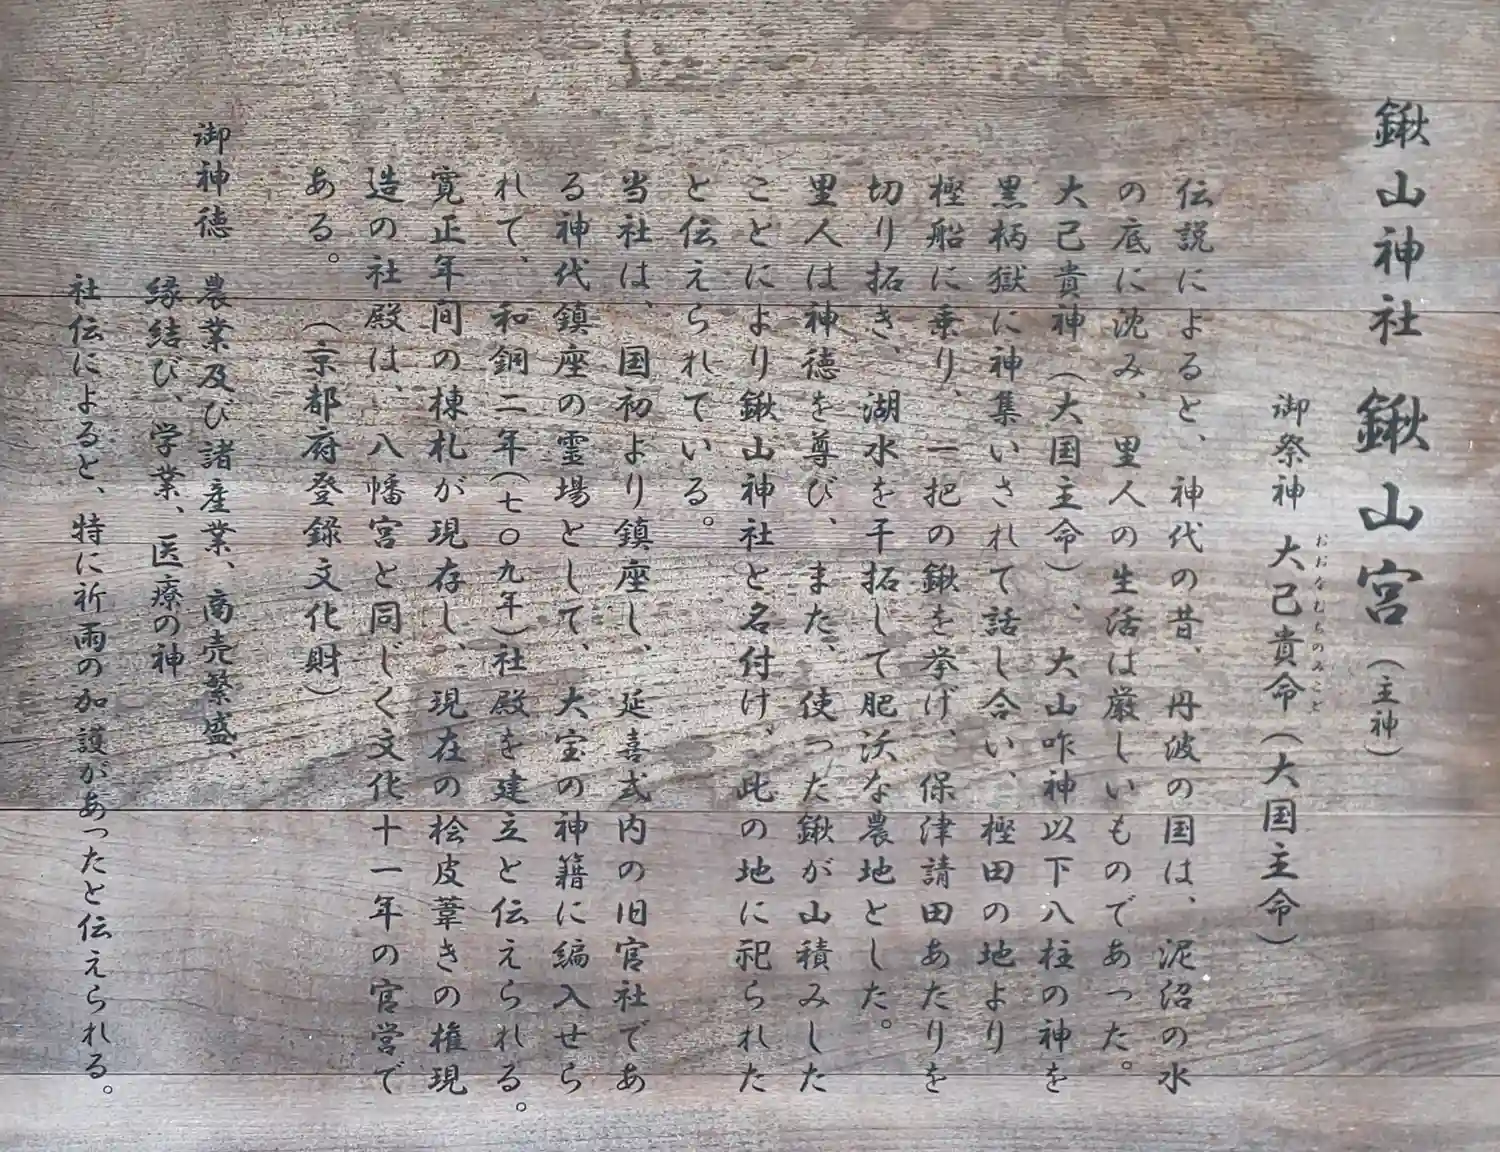 鍬山神社 鍬山宮（主神）
御祭神 大己貴命（大国主命）
おおなむちのみこと
伝説によると、神代の昔、丹波の国は、泥沼の水
の底に沈み、里人の生活は厳しいものであった。
大己貴神（大国主命）、大山咋神以下八柱の神を
黒柄獄に神集いされて話し合い、樫田の地より
樫船に乗り、一把の鍬を挙げ、保津請田あたりを
切り拓き、湖水を干拓して肥沃な農地とした。
里人は神徳を尊び、また、使った鍬が山積みした
ことにより鍬山神社と名付け、此の地に祀られた
と伝えられている。
当社は、国初より鎮座し、延喜式内の旧官社であ
る神代鎮座の霊場として、大宝の神籍に編入せら
れて、和銅二年（七〇九年）社殿を建立と伝えられる。
寛正年間の棟札が現存し、現在の桧皮葺きの権現
造の社殿は、八幡宮と同じく文化十一年の官営で
ある。 （京都府登録文化財）
御神徳 農業及び諸産業、商売繁盛、
縁結び、学業、医療の神
社伝によると、特に祈雨の加護があったと伝えられる。